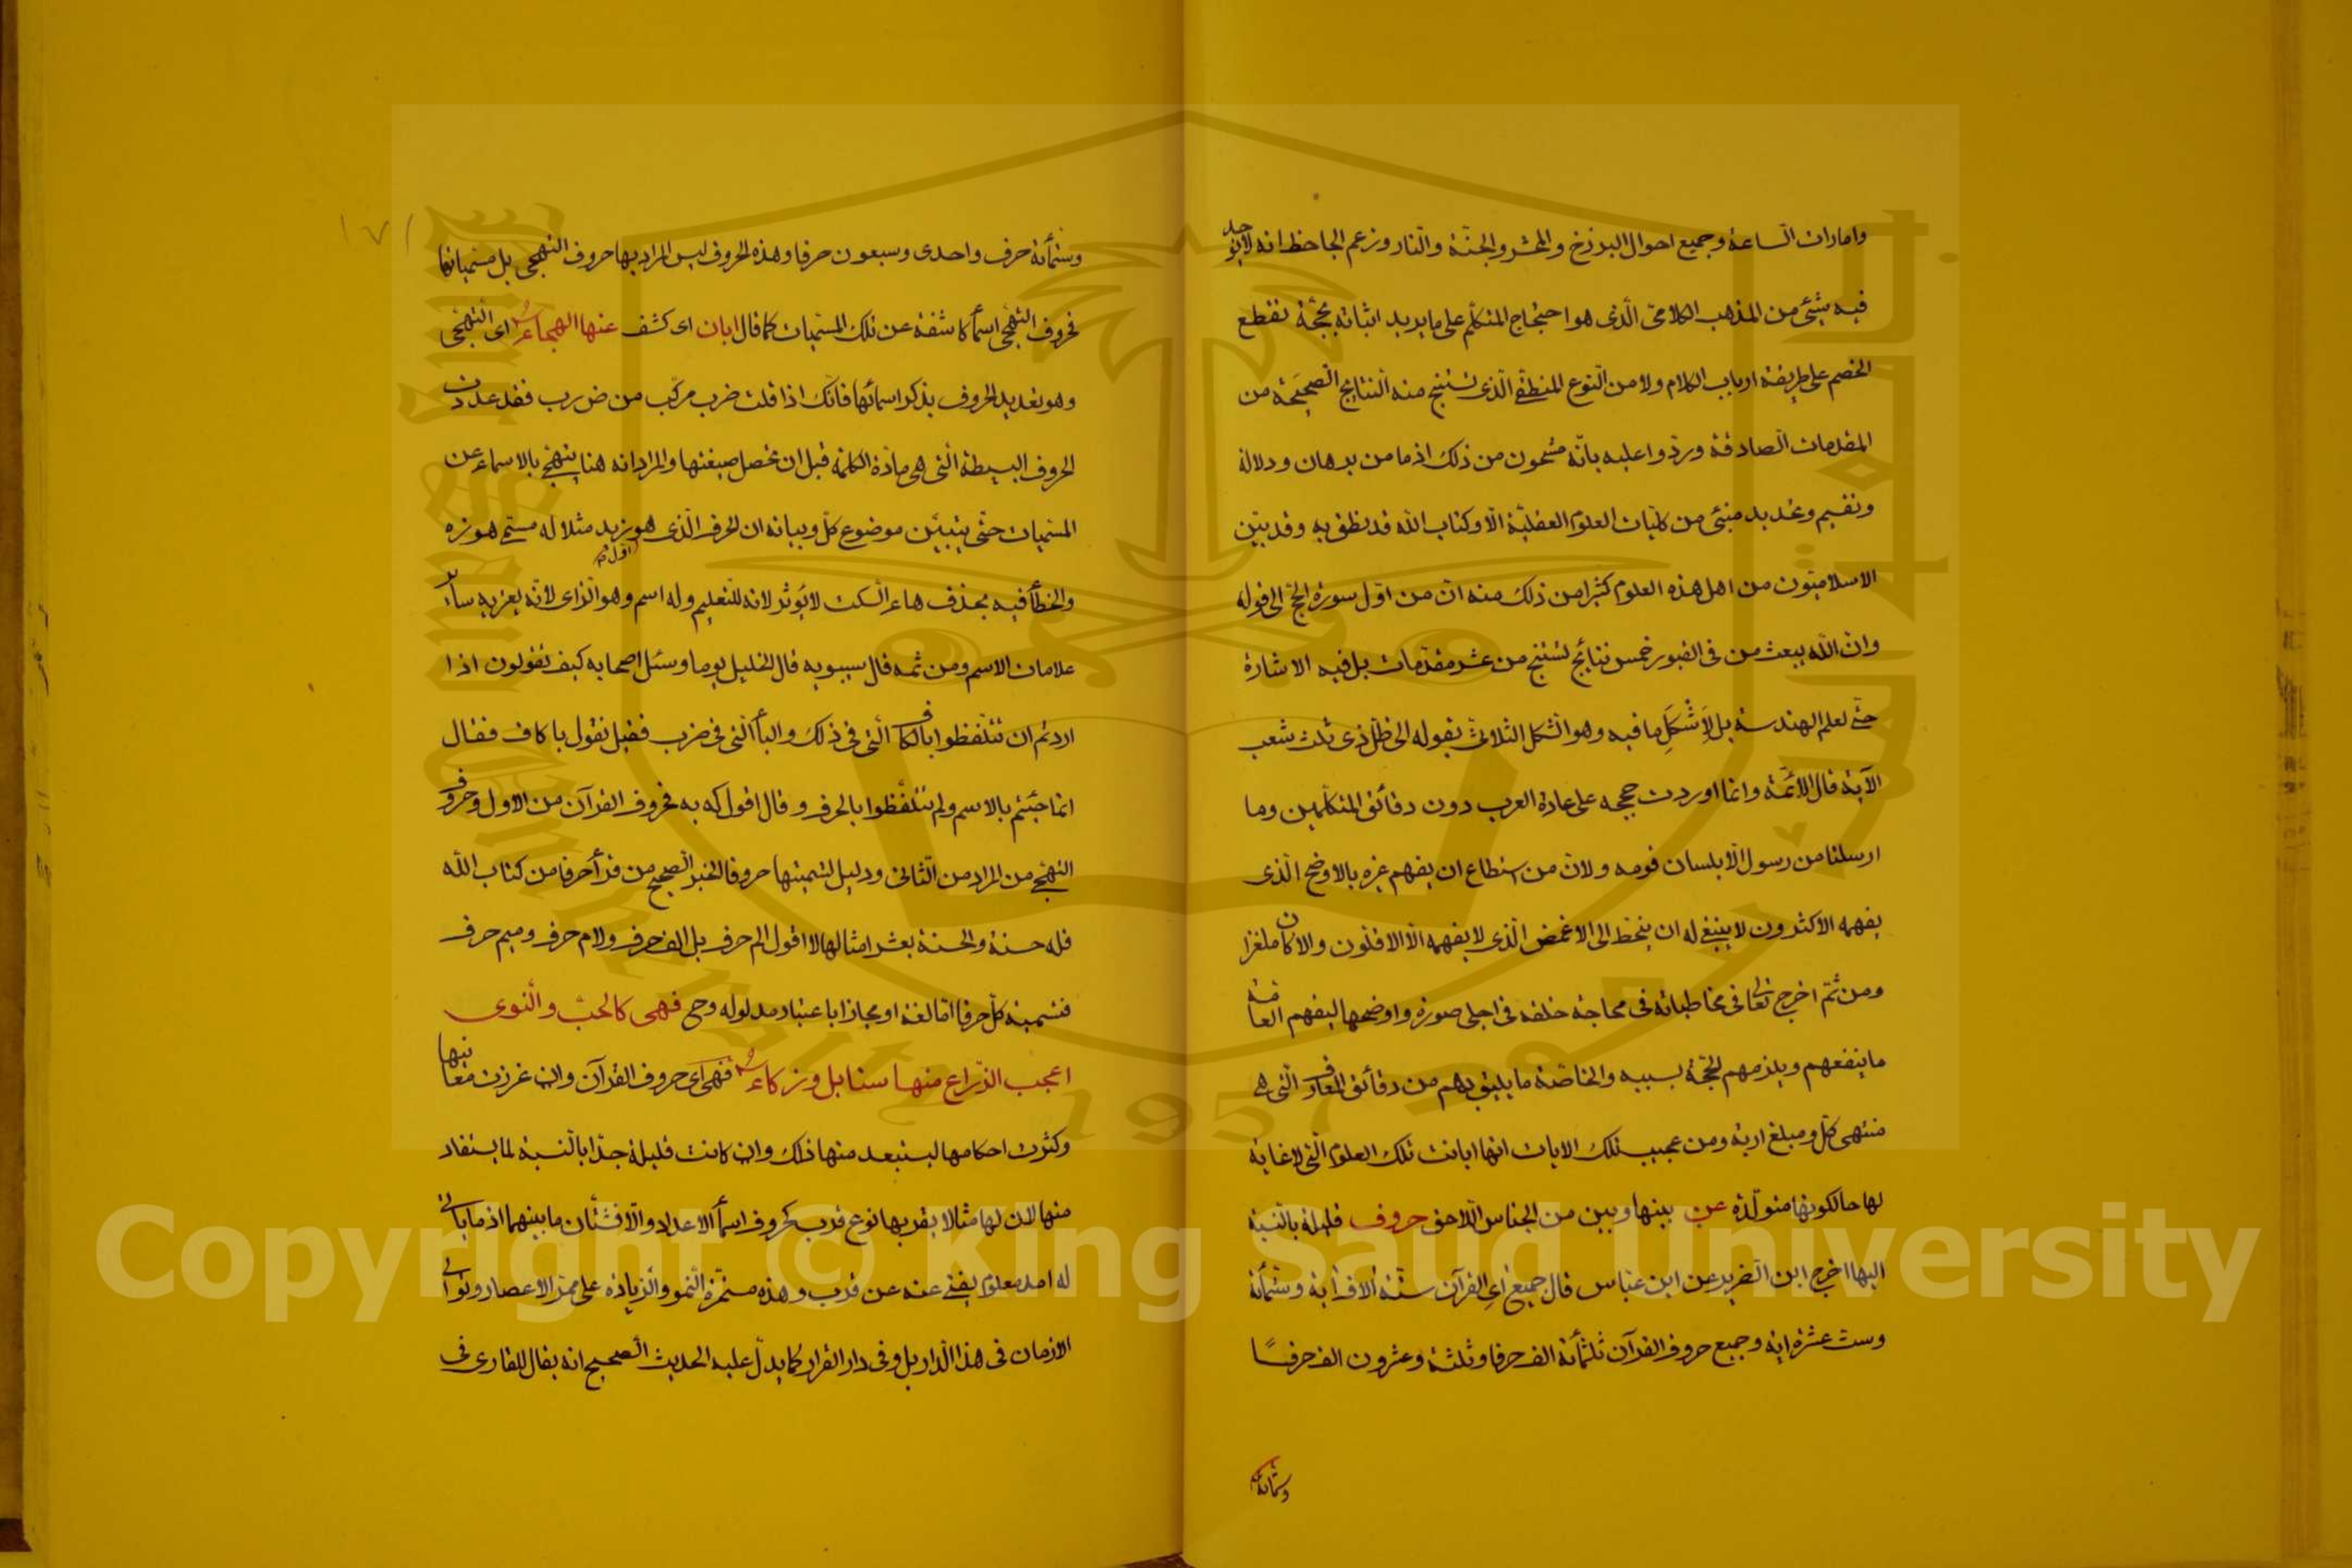 وامارات الساعة وجميع احوال البرزخ والمحشر والجنّة والنار وزعم الجاحظ انه لا يوجد
فيه شيئ من المذهب الكلامى الّذى هو احتجاج المتكلّم على ما يريد اثباته بحجّة تقطع
الخصم على طريقة ارباب الكلام ولا من النوع المنطقى الّذى تستنتج منه النتايج الصحيحة من
المقدمات الصادقة وردّوا عليه بانّه مشحون من ذلك اذ ما من برهان ودلالة
وتقسيم وتحديد منبئ من كليّات العلوم العقليّة الّا وكتاب الله قد نطق به وقد بيّن
الاسلاميّون من اهل هذه العلوم كثيرا من ذلك منه انّ من اوّل سورة الحج الى قوله
وانّ الله يبعث من فى القبور خمس نتائج تستنتج من عشر مقدّمات بل فيه الاشارة
حتّى لعلم الهندسة بل لِأَشْكَلِ ما فيه وهو الشكل الثلاثى بقوله الى ظلّ ذى ثلث شعب
الآية قال الائمّة وانما اوردت حججه على عادة العرب دون دقائق المتكلّمين وما
ارسلنا من رسول الّا بلسان قومه ولانّ من استطاع ان يفهم غيره بالاوضح الّذى
يفهمه الاكثرون لا ينبغى له ان ينحّط الى الاغمض الّذى لا يفهمه الّا الاقلّون والا كان ملغزا
ومن ثمّ اخرج تعالى مخاطباته فى محاجة خلقه فى اجلى صورة واوضحها ليفهم العامّة
ما ينفعهم ويلزمهم الحجّة بسببه والخاصّة ما يليق بهم من دقائق المعارف الّتى هى
منتهى كلّ ومبلغ اربه ومن عجيب تلك الايات انها ابانت تلك العلوم الّتى لا غاية
لها حالكونها متولّدة عن بينها وبين من الجناس اللاحق حروف قليلة بالنسبة
اليها اخرج ابن الضريس عن ابن عباس قال جميع اى القرآن ستّة الاف اية وستّمأئة
وست عشرة اية وجميع حروف القرآن ثلثمأئة الف حرفا وثلثة وعشرون الف حرفًا
وستمائة
١٧١
وستمأئة حرف واحدى وسبعون حرفا وهذه الحروف ليس المراد بها حروف التهجى بل مسمياتها
فحروف التهجى اسمأ كاشفة عن تلك المسمّيات كما قال ابان اى كشف عنها الهجاء اى التهجّى
وهو تعديد الحروف بذكر اسمائها فانّك اذا قلت ضرب مركّب من ض رب فقد عددت
الحروف البسيطة الّتى هى مادّة الكلمة قبل ان تحصل صيغتها والمراد انه هنا يتهجّى بالاسماء عن
المسمّيات حتّى يتبيّن موضوع كلّ وبيانه ان الحرف الّذى هو زيد مثلا له مسمّى هو زه
والخطأ فيه بحذف هاء السّكت لا يؤثر لانه للتعليم وله اسم وهو الزاى لانّه يعزبه سائر
علامات الاسم ومن ثمه قال سيبويه قال الخليل يوما وسئل اصحابه كيف تقولون اذا
اردتم ان تتلّفظوا بالكاف الّتى فى ذلك والبأ الّتى فى ضرب فقيل نقول با كاف فقال
انما جئتم بالاسم ولم تتلّفظوا بالحرف وقال اقول كه به فحروف القرآن من الاول وحروف
التهجّى من المراد من الثّانى ودليل تسميتها حروفا الخبر الصحيح من قرأ حرفا من كتاب الله
فله حسنة والحسنة بعشر امثالها لا اقول الم حرف بل الف حرف ولام حرف وميم حرف
فتسمية كلّ حرفا امّا لغة او مجازا باعتبار مدلوله وح فهى كالحبّ والنّوى
اعجب الزرّاع منها سنابل وزكاء فهى اى حروف القرآن وان غزرت معانيها
وكثرت احكامها ليستبعد منها ذلك وان كانت قليلة جدّا بالنسبة لما يستفاد
منها لان لها مثالا يقربها نوع قرب كحروف اسمأ الاعداد والا فشتّان ما بينهما اذ ما ياتى
له امد معلوم يفنى عنه عن قرب وهذه مستمرّة النمو والزيادة على ممرّ الاعصار وتوالى
الازمان فى هذا الدار بل وفى دار القرار كما يدلّ عليه الحديث الصحيح انه يقال للقارى فى